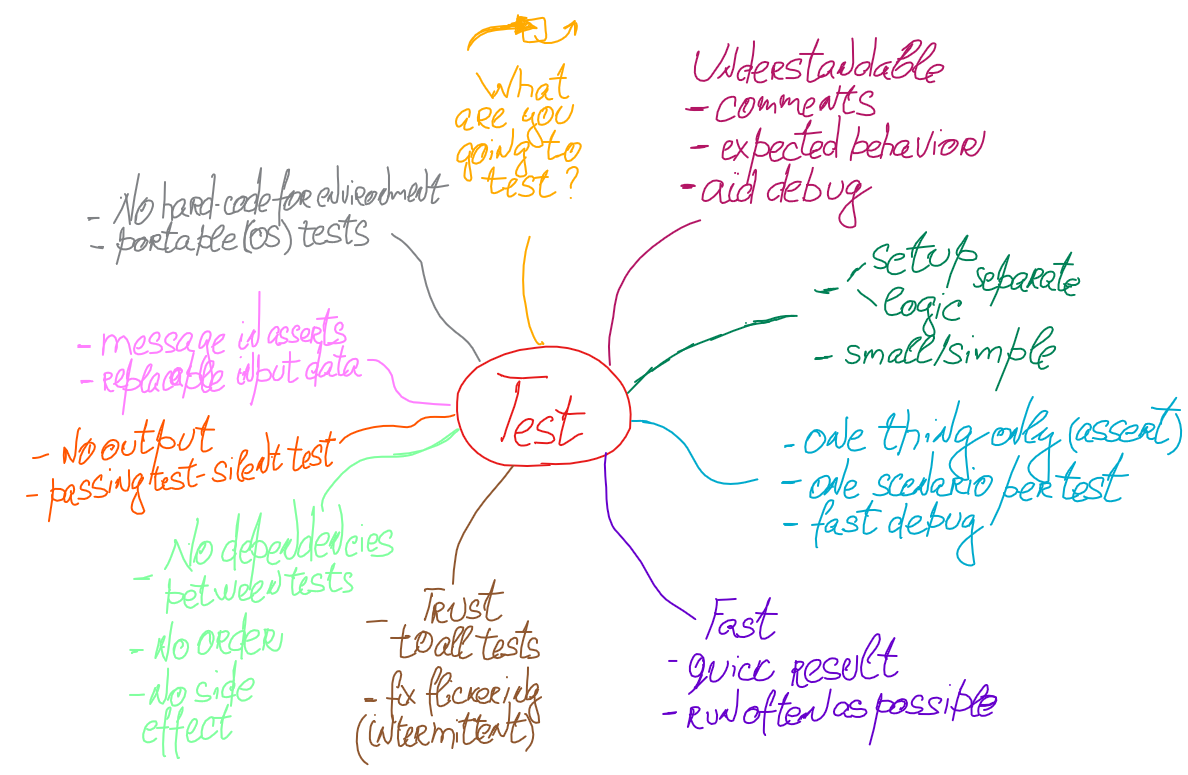 What
are you
going to
test?
Understandable
- comments
- expected behavior
- aid debug
- setup
logic
separate
- small/simple
- one thing only (assert)
- one scenario per test
- fast debug
Fast
- quick result
- run often as possible
- Trust
to all tests
- fix flickering
(intermittent)
- No dependencies
between tests
- No order
- No side
effect
- No output
- passing test - silent test
- message in asserts
- replacable input data
- No hard-code for environment
- portable (OS) tests
Test